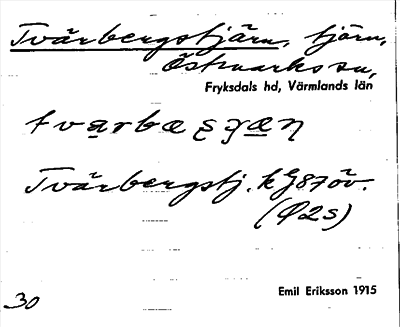 Tvärbergstjärn, tjärn,
Östmarks sn,
Fryksdals hd, Värmlands län
Tvärbergstj. kG87öv.
(Ö2s)
Emil Eriksson 1915
30